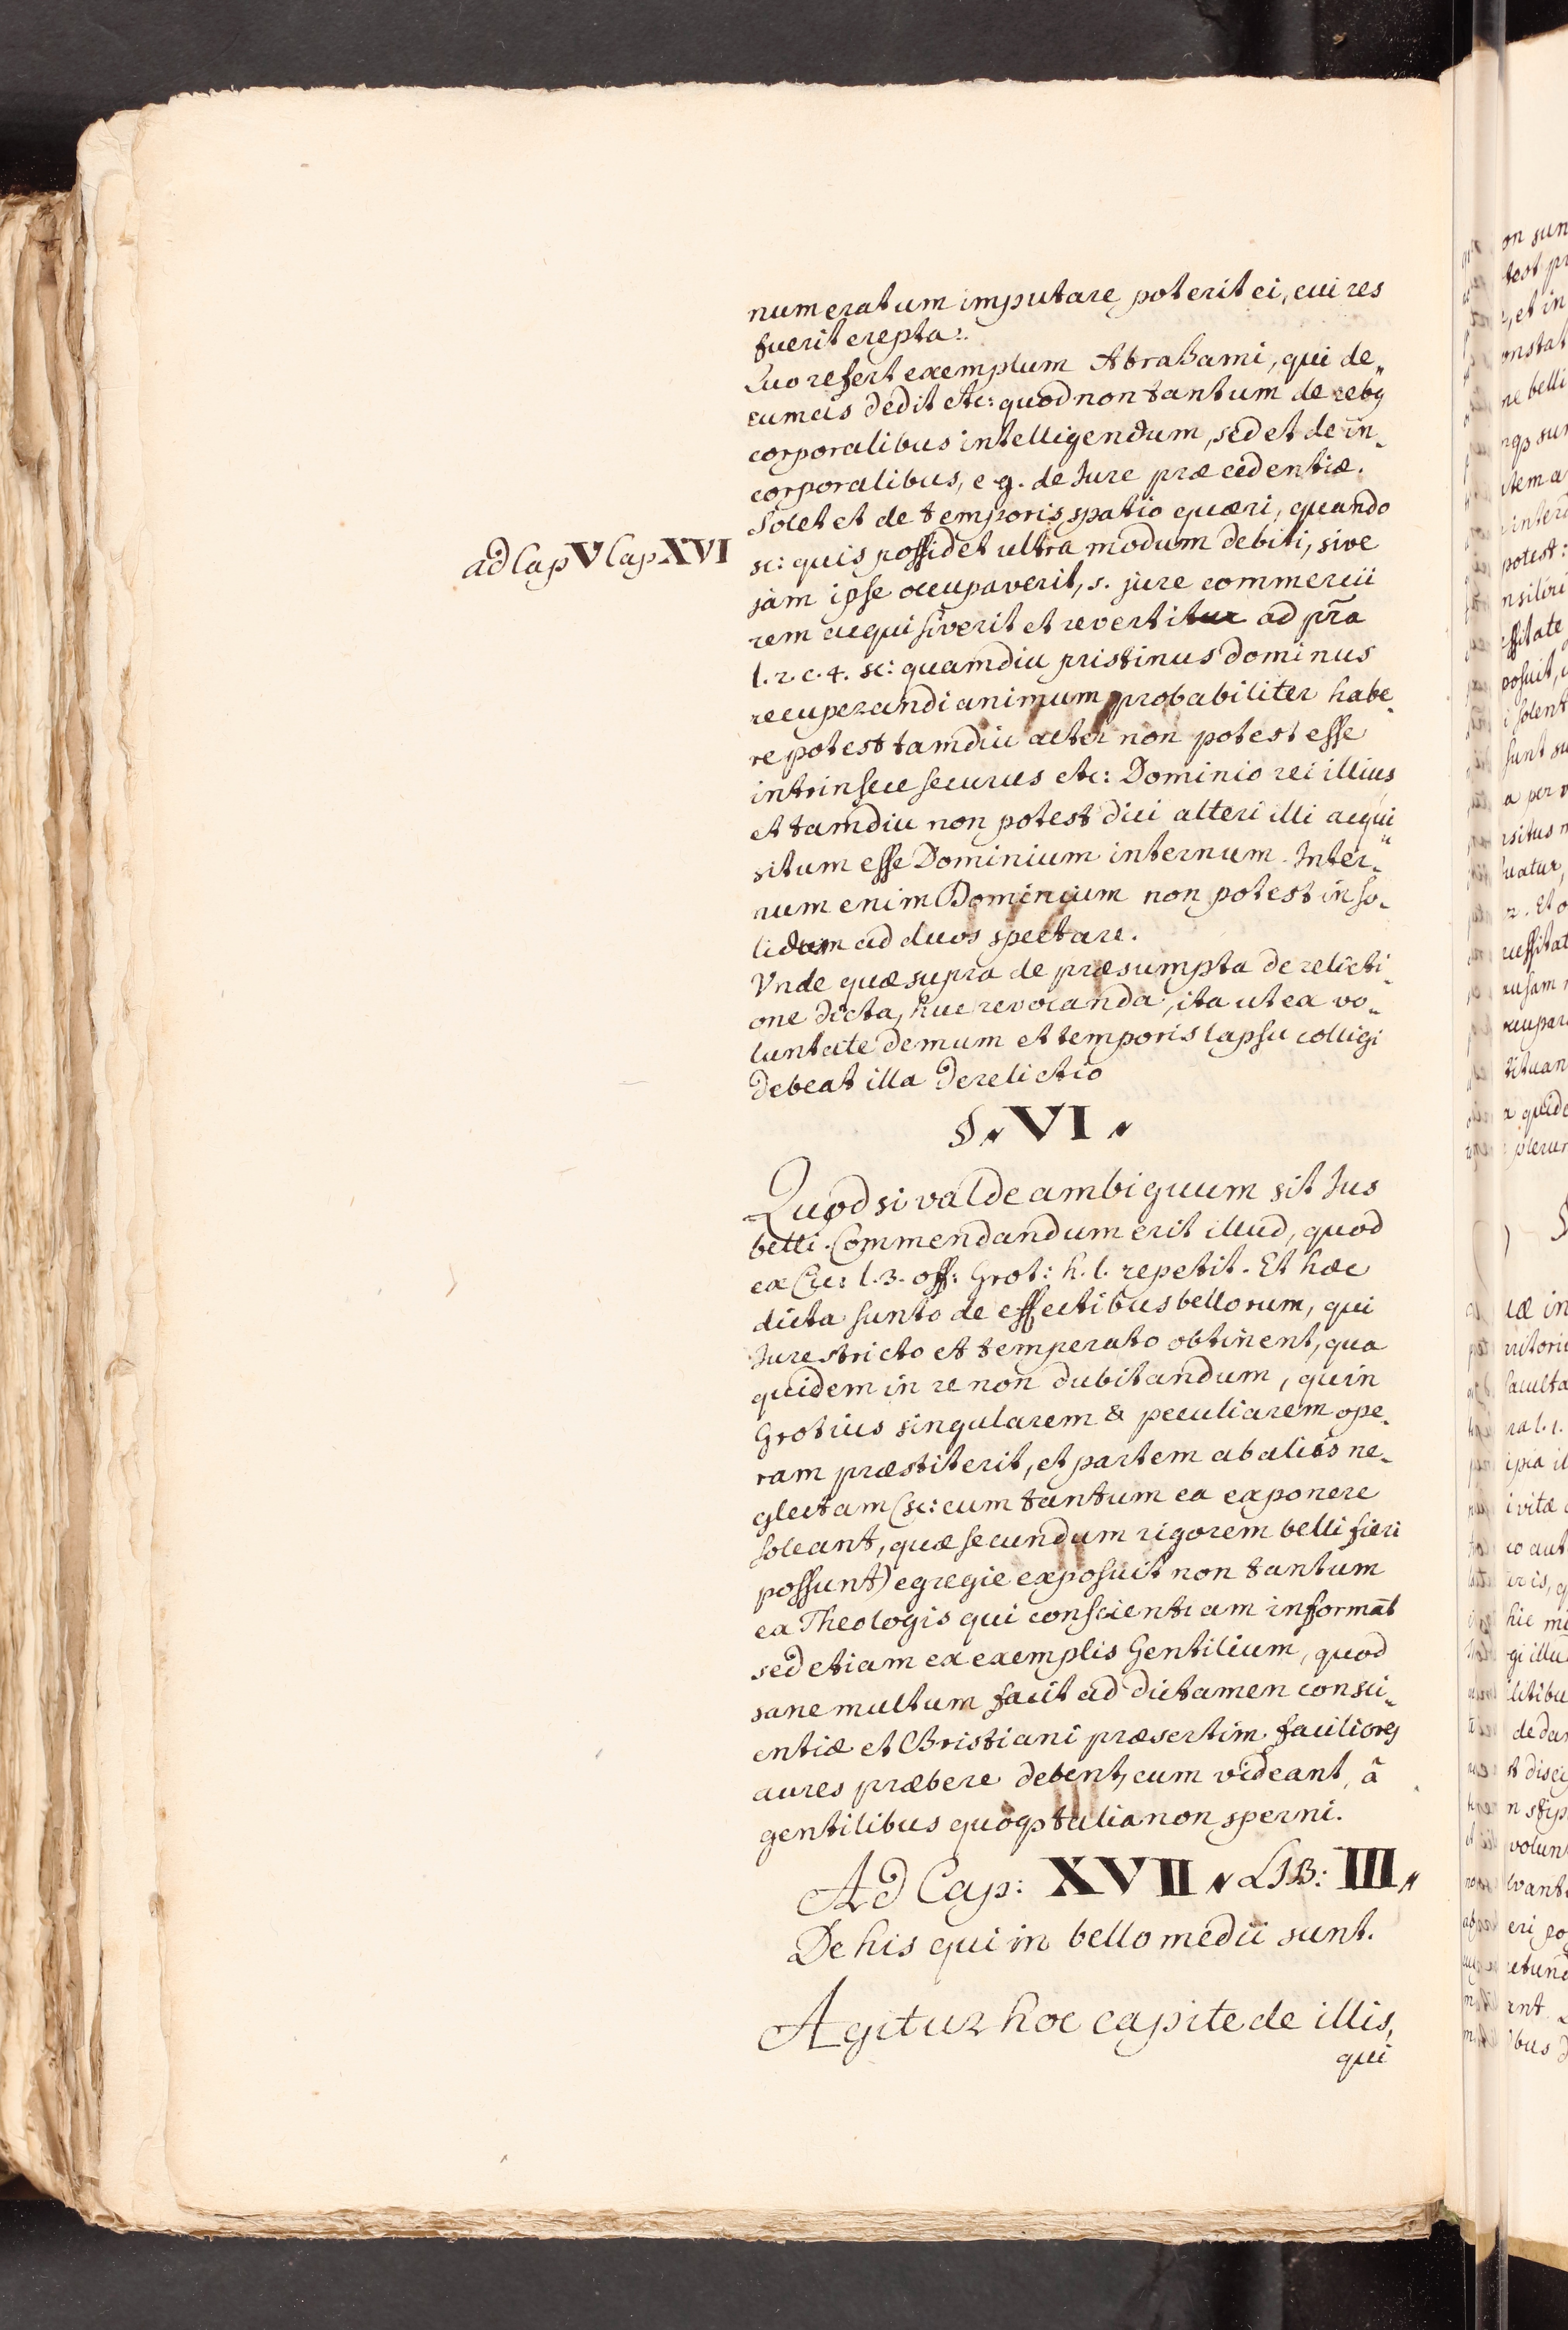 numeratum imputare poterit ei, cui res
fuerit erepta:.
Quo refert exemplum Abrahami, qui de„
cumas dedit etc: quod non tantum de rebq
corporalibus intelligendum, sed et de in„
corporalibus, e g. de Jure præcedentiæ.
Solet et de temporis spatio quæri, quando
ad Cap V Cap XVI
sc: quis possidet ultra modum debiti, sive
jam ipse occupaverit, s. jure commercii
rem acquisiverit et revertitur ad pr̃a
l. 2. c. 4. sc: quamdiu pristinus dominus
recuperandi animum probabiliter habe„
re potest tamdiu alter non potest esse
intrinsece securus etc: Dominio rei illius
et tamdiu non potest dici alteri illi acqui„
situm esse Dominium internum. Inter„
num enim Dominium non potest in so„
lidum ad duos spectare.
Vnde quæ supra de præsumpta derelicti„
one dicta, huc revocanda, ita ut ea vo„
luntate demum et temporis lapsu colligi
debeat illa derelictio
§. VI.
Quod si valde ambiguum sit Jus
belli. Commendandum erit illud, quod
ex Cic: l. 3. off: Grot: h. l. repetit. Et hæc
dicta sunto de effectibus bellorum, qui
Jure stricto et temperato obtinent, qua
quidem in re non dubitandum, quin
Grotius singularem & peculiarem ope„
ram præstiterit, et partem ab aliis ne„
glectam (sc: cum tantum ea exponere
soleant, quæ secundum rigorem belli fieri
possunt) egregie exposuit non tantum
ex Theologis qui conscientiam informãt
sed etiam ex exemplis Gentilium, quod
sane multum facit ad dictamen consci„
entiæ et Christiani præsertim faciliores
aures præbere debent, cum videant, ã
gentilibus quoqȝ talia non sperni.
Ad Cap: XVII. LIB: III.
De his qui in bello medii sunt.
Agitur hoc capite de illis,
qui